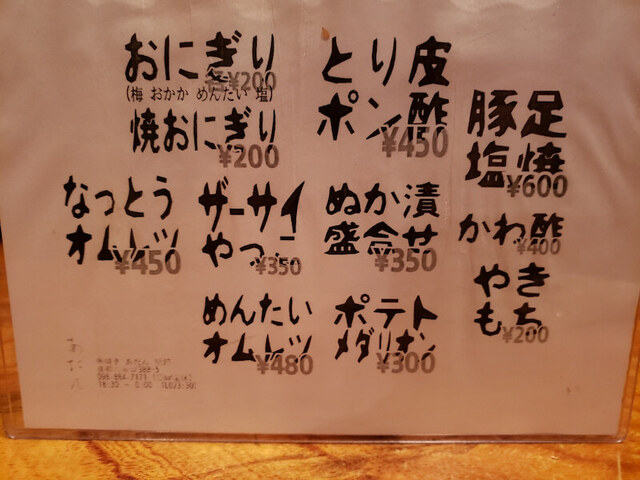 おにぎり
各¥200
(梅 おかか めんたい 塩)
焼おにぎり
¥200
とり皮
ポン酢
¥450
豚足
塩焼
¥600
なっとう
オムレツ
¥450
ザーサイ
やっこ
¥350
ぬか漬
盛合せ
¥350
かわ酢
¥400
やき
もち
¥200
めんたい
オムレツ
¥480
ポテト
メダリオン
¥300